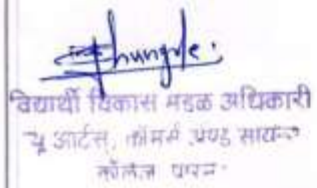 विद्यार्थी विकास मंडळ अधिकारी
न्यू आर्टस, कॉमर्स अॅण्ड सायन्स
कॉलेज पारनेर